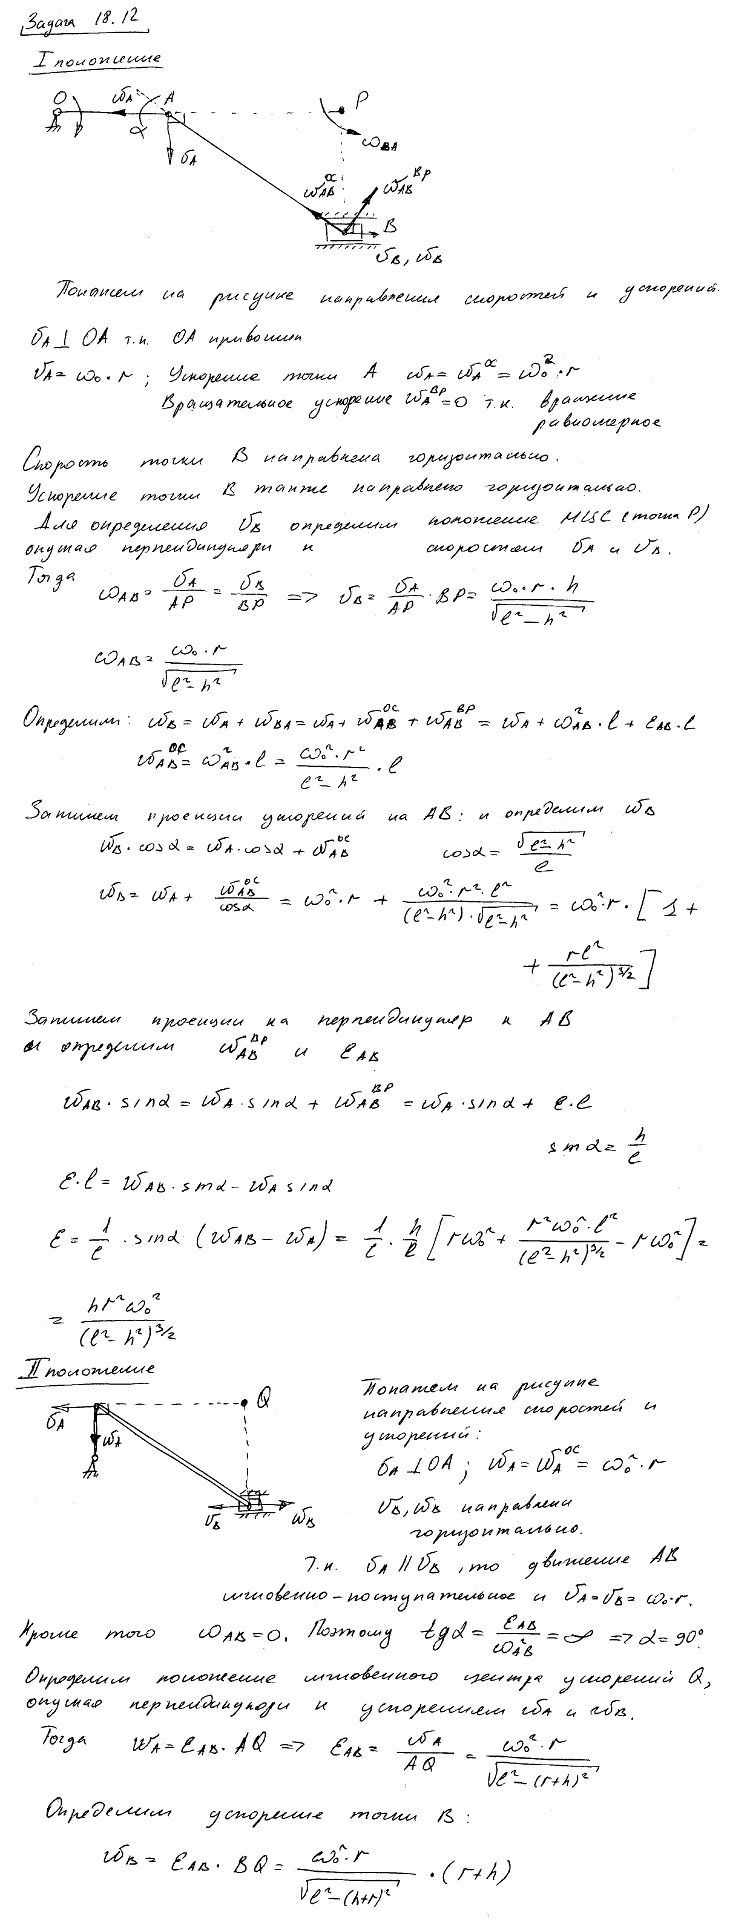 Задача 18.12
I положение
O
w_A
A
P
α
v_A
ω_BA
w_AB^oc
w_AB^вр
B
v_B, w_B
Покажем на рисунке направления скоростей и ускорений.
v_A ⊥ OA т.к. OA кривошип
v_A = ω₀·r ; Ускорение точки A w_A = w_A^oc = ω₀²·r
Вращательное ускорение w_A^вр = 0 т.к. вращение
равномерное
Скорость точки B направлена горизонтально.
Ускорение точки B также направлено горизонтально.
Для определения v_B определим положение МЦС (точка P)
опуская перпендикуляры к скоростям v_A и v_B.
Тогда ω_AB = v_A/AP = v_B/BP => v_B = v_A/AP · BP = ω₀·r·h/√(l²-h²)
ω_AB = ω₀·r/√(l²-h²)
Определим: w_B = w_A + w_BA = w_A + w_AB^oc + w_AB^вр = w_A + ω²_AB·l + ε_AB·l
w_AB^oc = ω²_AB·l = ω₀²·r²/(l²-h²) · l
Запишем проекции ускорений на AB: и определим w_B
w_B·cosα = w_A·cosα + w_AB^oc cosα = √(l²-h²)/l
w_B = w_A + w_AB^oc/cosα = ω₀²·r + ω₀²·r²·l²/((l²-h²)·√(l²-h²)) = ω₀²·r·[1+
+ rl²/(l²-h²)^3/2]
Запишем проекции на перпендикуляр к AB
и определим w_AB^вр и ε_AB
w_AB·sinα = w_A·sinα + w_AB^вр = w_A·sinα + ε·l
sinα = h/l
ε·l = w_AB·sinα - w_A sinα
ε = 1/l · sinα (w_AB - w_A) = 1/l · h/l [rω₀² + r²ω₀²·l²/(l²-h²)^3/2 - rω₀²] =
= hr²ω₀²/(l²-h²)^3/2
II положение
v_A
w_A
Q
v_B
w_B
Покажем на рисунке
направления скоростей и
ускорений:
v_A ⊥ OA ; w_A = w_A^oc = ω₀²·r
v_B, w_B направлены
горизонтально.
Т.к. v_A || v_B, то движение AB
мгновенно-поступательное и v_A = v_B = ω₀·r.
Кроме того ω_AB = 0. Поэтому tgα = ε_AB/ω²_AB = ∞ => α = 90°.
Определим положение мгновенного центра ускорений Q,
опуская перпендикуляры к ускорениям w_A и w_B.
Тогда w_A = ε_AB·AQ => ε_AB = w_A/AQ = ω₀²·r/√(l²-(r+h)²)
Определим ускорение точки B:
w_B = ε_AB·BQ = ω₀²·r/√(l²-(h+r)²) · (r+h)